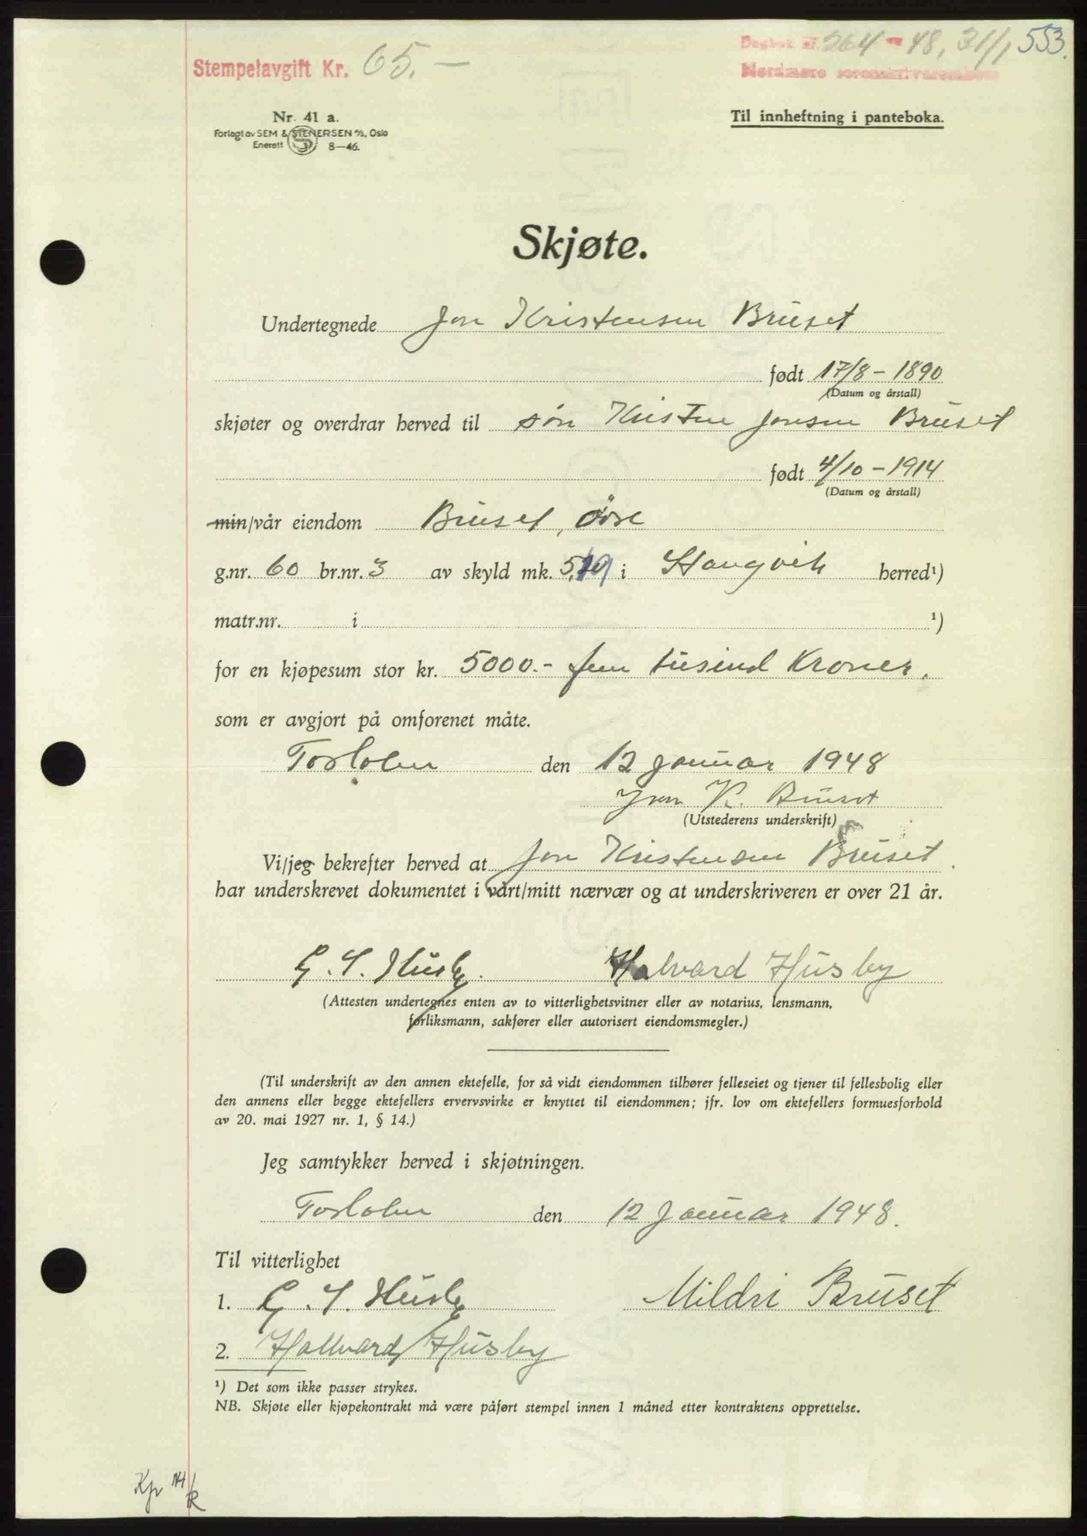 Stempelavgift Kr. 65.-
Dagbok nr. 264 - 48, 31/1 553.
Nordmøre sorenskriverembete
Nr. 41 a.
Forlagt av SEM & STENERSEN A/S, Oslo
Enerett S 8—46.
Til innheftning i panteboka.
Skjøte.
Undertegnede Jon Kristensen Bruset
født 17/8 - 1890
(Datum og årstall)
skjøter og overdrar herved til søn Kristen Jonsen Bruset
født 4/10 - 1914
(Datum og årstall)
min/vår eiendom Bruset, øvre
g.nr. 60 br.nr. 3 av skyld mk. 5,19 i Stangvik herred¹)
matr.nr. i ¹)
for en kjøpesum stor kr. 5000.- fem tusind Kroner.
som er avgjort på omforenet måte.
den 12 januar 1948
Jon K. Bruset
(Utstederens underskrift)
Vi/jeg bekrefter herved at Jon Kristensen Bruset.
har underskrevet dokumentet i vårt/mitt nærvær og at underskriveren er over 21 år.
Halvard Husby
(Attesten undertegnes enten av to vitterlighetsvitner eller av notarius, lensmann,
forliksmann, sakfører eller autorisert eiendomsmegler.)
(Til underskrift av den annen ektefelle, for så vidt eiendommen tilhører felleseiet og tjener til fellesbolig eller
den annens eller begge ektefellers ervervsvirke er knyttet til eiendommen; jfr. lov om ektefellers formuesforhold
av 20. mai 1927 nr. 1, § 14.)
Jeg samtykker herved i skjøtningen.
den 12 januar 1948.
Til vitterlighet
1. G. S. Husby Mildri Bruset
2. Hallvard Husby
¹) Det som ikke passer strykes.
NB. Skjøte eller kjøpekontrakt må være påført stempel innen 1 måned etter kontraktens opprettelse.